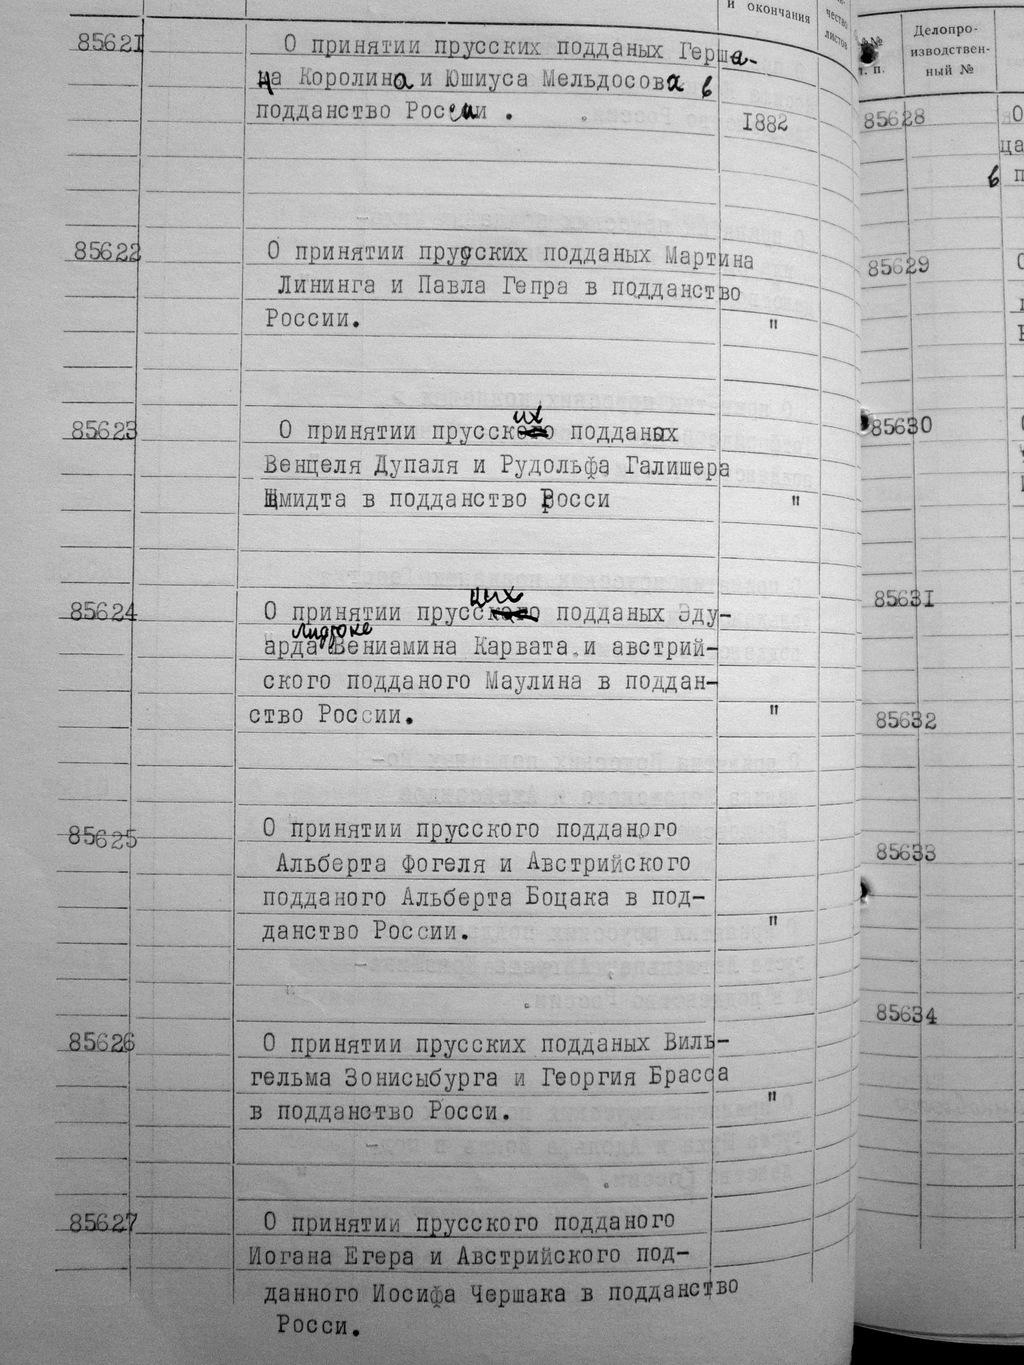 и окончания
листов
85621
О принятии прусских подданых Герша-
ца Королина и Юшиуса Мельдосова в
подданство России .
1882
85622
О принятии прусских подданых Мартина
Лининга и Павла Гепра в подданство
России.
"
85623
их
О принятии прусского подданых
Венцеля Дупаля и Рудольфа Галишера
Шмидта в подданство Росси
"
85624
ких
О принятии прусского подданых Эду-
арда Вениамина Карвата и австрий-
ского подданого Маулина в поддан-
ство России.
"
85625
О принятии прусского подданого
Альберта Фогеля и Австрийского
подданого Альберта Боцака в под-
данство России.
"
85626
О принятии прусских подданых Виль-
гельма Зонисыбурга и Георгия Брасса
в подданство Росси.
"
85627
О принятии прусского подданого
Иогана Егера и Австрийского под-
данного Иосифа Чершака в подданство
Росси.
п. п.
Делопро-
изводствен-
ный №
85628
О
ца
в п
85629
85630
85631
85632
85633
85634